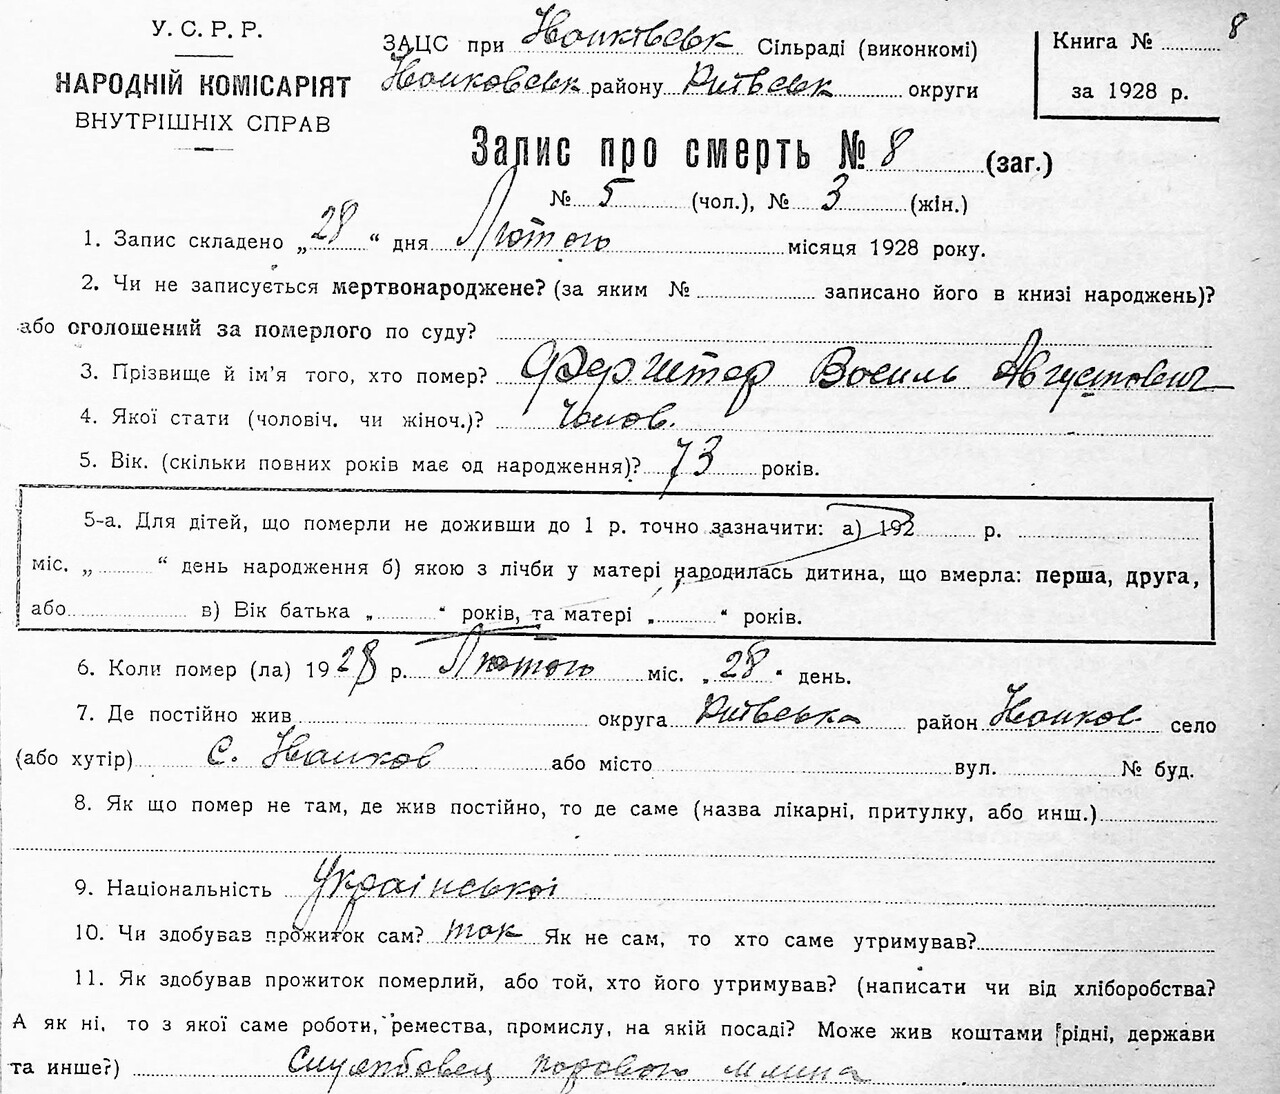 У. С. Р. Р.
НАРОДНІЙ КОМІСАРІЯТ
ВНУТРІШНІХ СПРАВ
ЗАЦС при Іванківськ Сільраді (виконкомі)
Іванковськ району Київськ округи
Книга № 8
за 1928 р.
Запис про смерть № 8 (заг.)
№ 5 (чол.), № 3 (жін.)
1. Запис складено „28“ дня Лютого місяця 1928 року.
2. Чи не записується мертвонароджене? (за яким № записано його в книзі народжень)?
або оголошений за померлого по суду?
3. Прізвище й ім'я того, хто помер? Василь Августович
4. Якої стати (чоловіч. чи жіноч.)? Чолов.
5. Вік. (скільки повних років має од народження)? 73 років.
5-а. Для дітей, що померли не доживши до 1 р. точно зазначити: а) 192 р.
міс. „ “ день народження б) якою з лічби у матері народилась дитина, що вмерла: перша, друга,
або в) Вік батька „ “ років, та матері „ “ років.
6. Коли помер (ла) 1928 р. Лютого міс. „28“ день.
7. Де постійно жив округа Київська район Іванков село
(або хутір) с. Іванков або місто вул. № буд.
8. Як що помер не там, де жив постійно, то де саме (назва лікарні, притулку, або инш.)
9. Національність Української
10. Чи здобував прожиток сам? так Як не сам, то хто саме утримував?
11. Як здобував прожиток померлий, або той, хто його утримував? (написати чи від хліборобства?
А як ні, то з якої саме роботи, ремества, промислу, на якій посаді? Може жив коштами рідні, держави
та инше?) Службовец парового млина